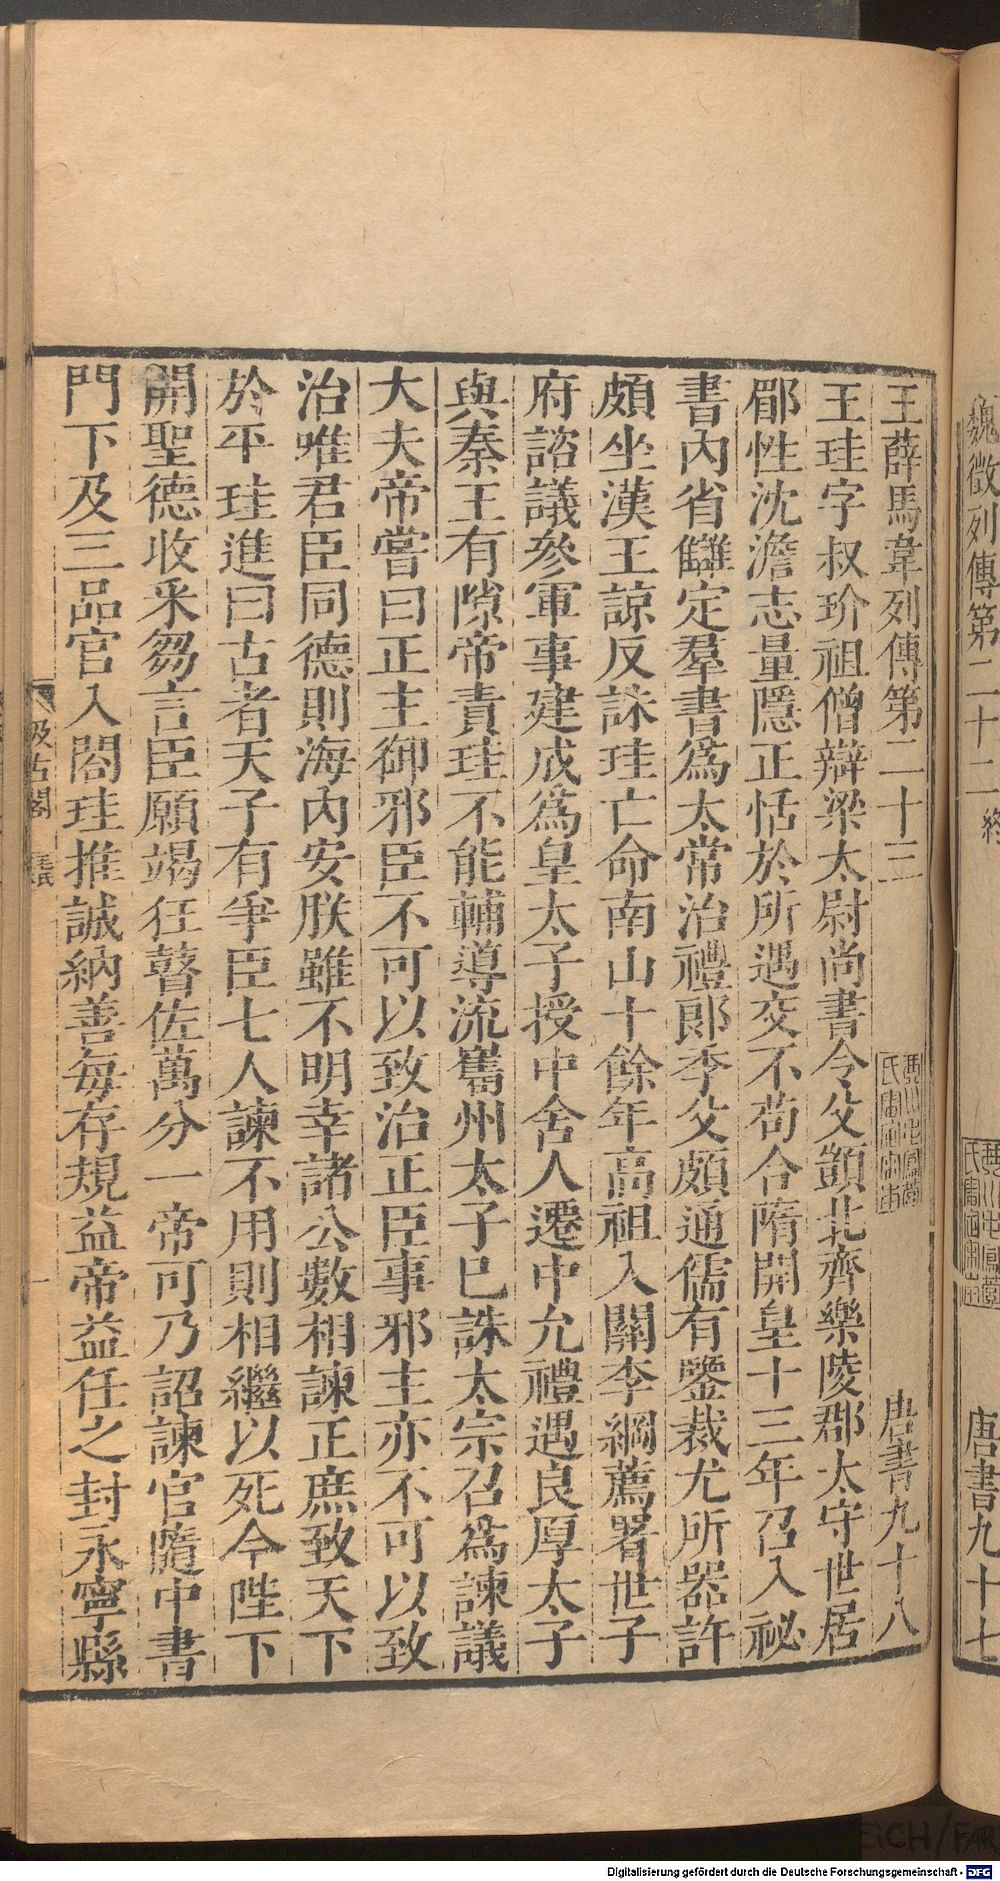 魏徵列傳第二十二 終
唐書九十七
王薛馬韋列傳第二十三
唐書九十八
王珪字叔玠祖僧辯梁太尉尚書令父顗北齊樂陵郡太守世居
郿性沈澹志量隱正恬於所遇交不苟合隋開皇十三年召入祕
書內省讎定羣書爲太常治禮郎季父頗通儒有鑒裁尤所器許
頗坐漢王諒反誅珪亡命南山十餘年高祖入關李綱薦署世子
府諮議參軍事建成爲皇太子授中舍人遷中允禮遇良厚太子
與秦王有隙帝責珪不能輔導流巂州太子已誅太宗召爲諫議
大夫帝嘗曰正主御邪臣不可以致治正臣事邪主亦不可以致
治唯君臣同德則海內安朕雖不明幸諸公數相諫正庶致天下
於平珪進曰古者天子有爭臣七人諫不用則相繼以死今陛下
開聖德收采芻言臣願竭狂瞽佐萬分一帝可乃詔諫官隨中書
門下及三品官入閤珪推誠納善每存規益帝益任之封永寧縣
汲古閣
毛氏
一
Digitalisierung gefördert durch die Deutsche Forschungsgemeinschaft - DFG